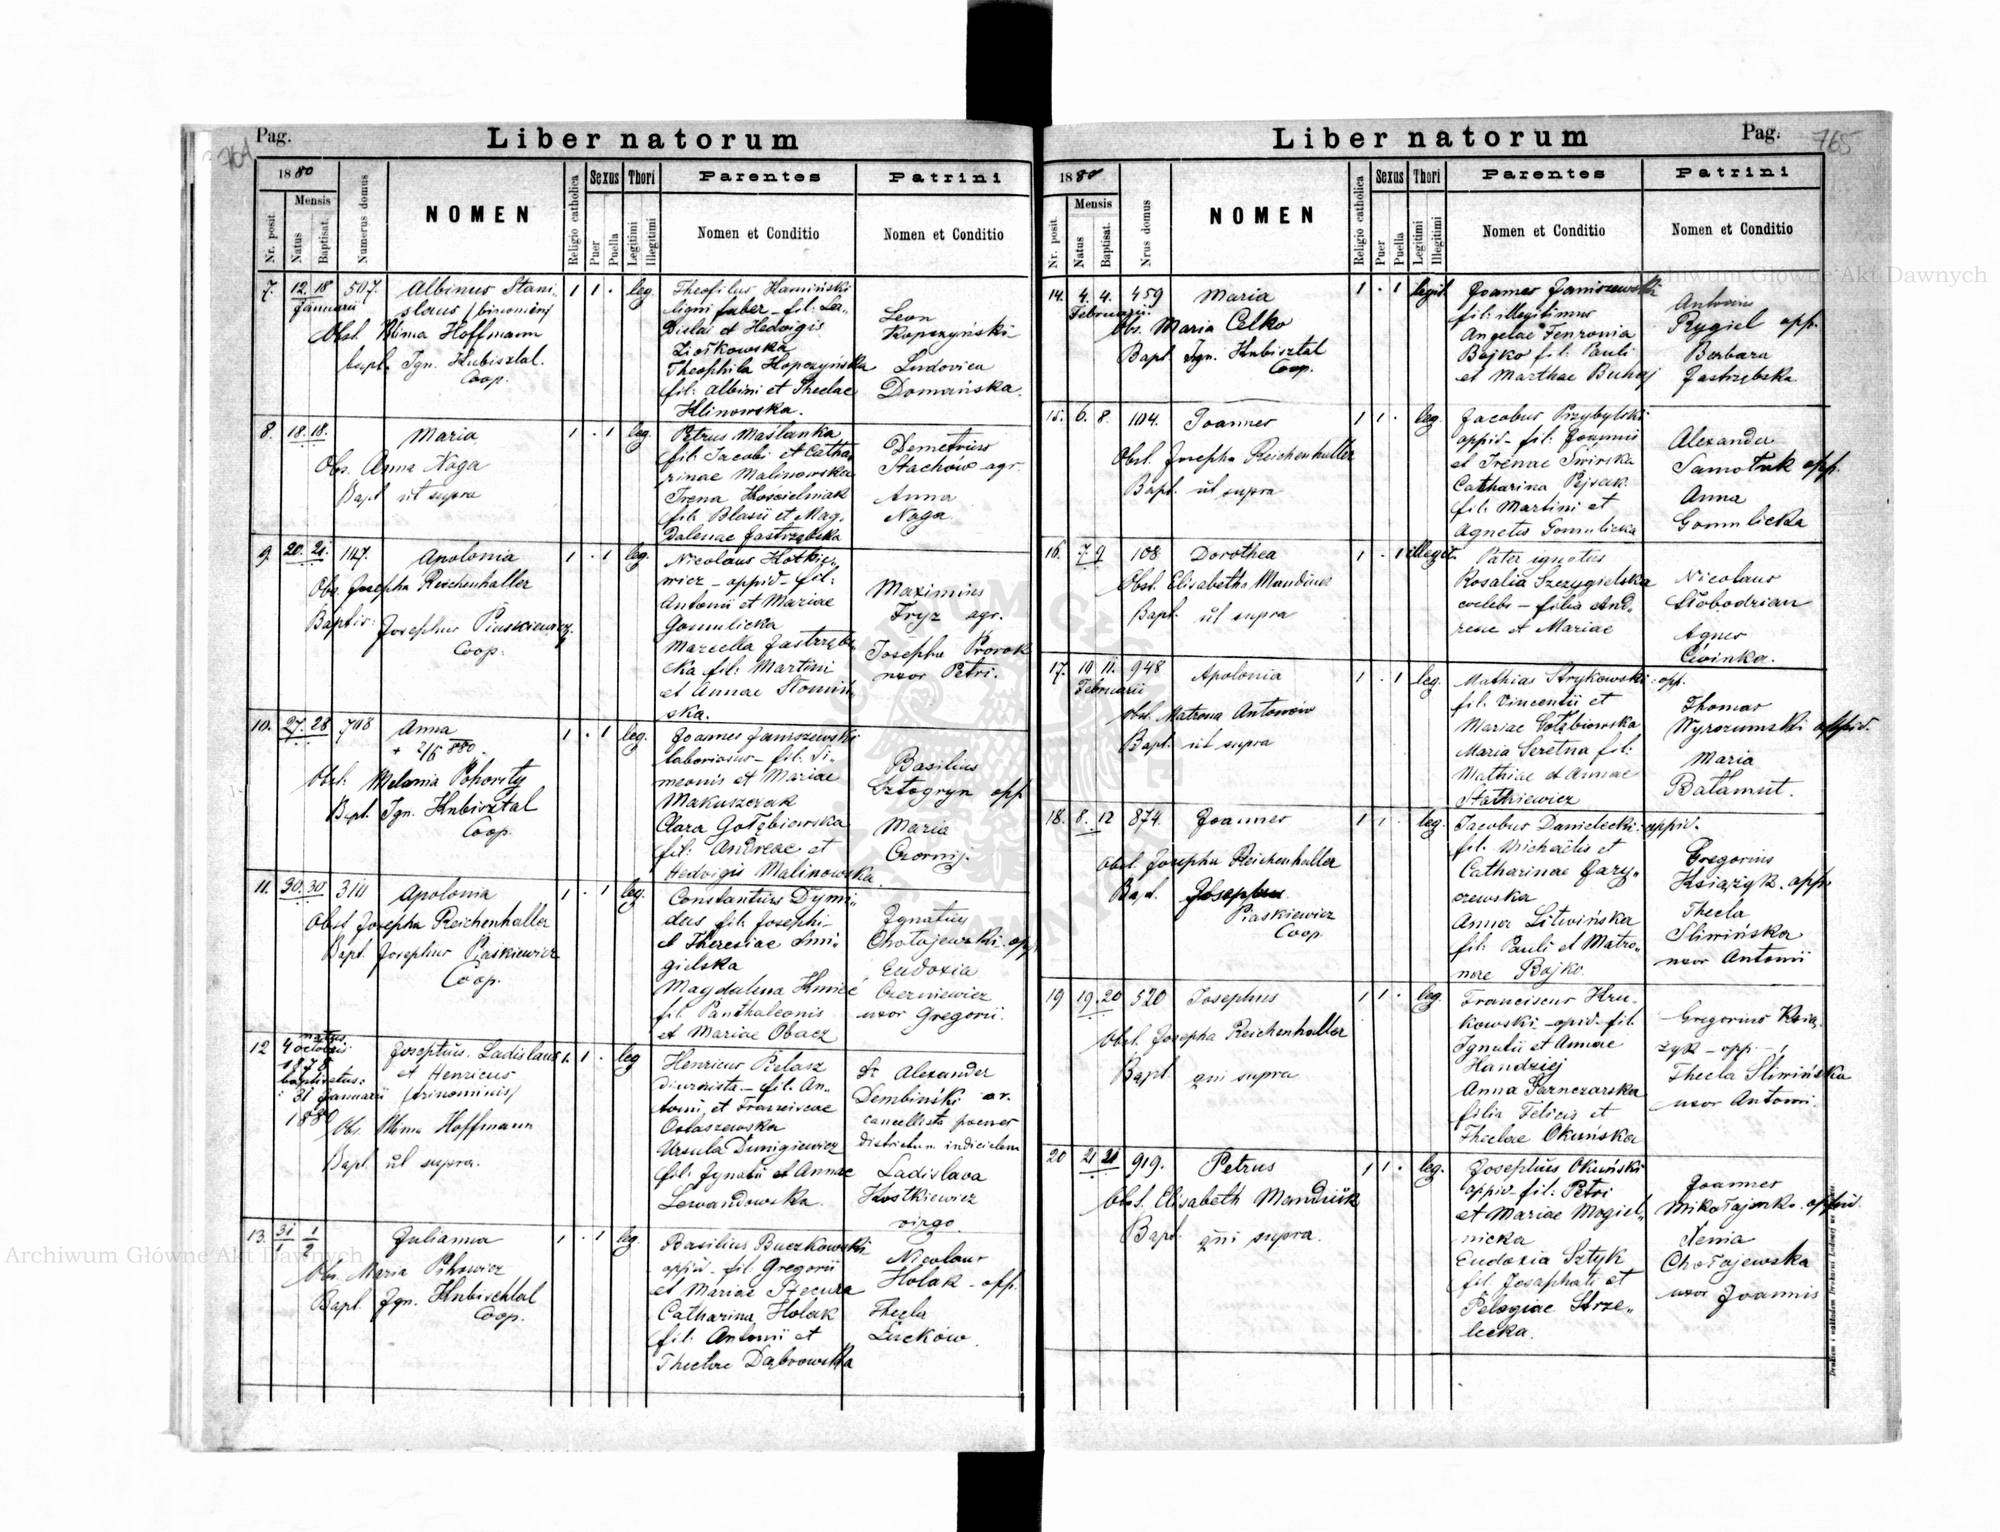 764
Pag.
Liber natorum
1880
Nr. posit.
Mensis
Natus
Baptisat.
Numerus domus
NOMEN
Religio catholica
Sexus
Puer
Puella
Thori
Legitimi
Illegitimi
Parentes
Nomen et Conditio
Patrini
Nomen et Conditio
7. 12. 18 507. Albinus Stani-
Januarii slaus (binomen)
Obst. Mina Hoffmann
bapt. Ign. Kubisztal
Coop.
1 1 . leg.
Theofilus Kamiński
ligni faber - fil: La-
dislai et Hedvigis
Ziołkowska
Theophila Kopczyńska
fil: Albini et Theclae
Klinowska.
Leon
Kopczyński
Ludovica
Domańska.
8. 18. 18. Maria
Obs. Anna Noga
Bapt ut supra
1 . 1 leg.
Petrus Maślanka
fil: Jacobi et Catha-
rinae Malinowska
Irena Kościelniak
fil: Blasii et Mag-
dalenae Jastrzębska
Demetrius
Stachow agr.
Anna
Noga
9. 20. 21. 147. Apolonia
Obs. Josepha Reichenhaller
Baptis: Josephus Piaskiewicz
Coop.
1 . 1 leg.
Nicolaus Hotkie-
wicz - oppid - fil:
Antonii et Mariae
Gomulicka
Marcella Jastrzęb-
cka fil: Martini
et Annae Słomiń-
ska.
Maximius
Fryz agr.
Josepha Prorok
uxor Petri.
10. 27. 28 708 Anna
+ 2/6 880.
Obst: Melania Pohoryły
Bapt. Ign. Kubisztal
Coop.
1 . 1 leg.
Joannes Janiszewski
laboriosus - fil: Si-
meonis et Mariae
Makuszczak
Clara Gołębiowska
fil: Andreae et
Hedvigis Malinowska.
Basilius
Sztogryn opp.
Maria
Czornij.
11. 30. 30 Apolonia
Obst Josepha Reichenhaller
Bapt. Josephus Piaskiewicz
Coop.
1 . 1 leg.
Constantius Dymi-
des fil: Josephi
et Theresiae Smi-
gielska
Magdalena Kmieć
fil: Panthaleonis
et Mariae Obacz
Ignatius
Chołajewski opp
Eudoxia
Czerniewicz
uxor Gregorii.
12 natus
4 octobris
1878
baptisatus:
31 Januarii
1880
Josephus. Ladislaus
et Henricus
(trinominis)
Obs. Mina Hoffmann
Bapt. ut supra.
1. 1 . leg
Henricus Pielasz
diurnista - fil: An-
tonii et Franciscae
Ostaszewska
Ursula Dunigiewicz
fil: Ignatii et Annae
Lewandowska.
Alexander
Dembiński
cancellista penes
districtum indicielem
Ladislava
Kostkiewicz
virgo
13. 31/1 1/2 Julianna
Obs. Maria Pihowicz
Bapt. Ign. Kubischtal
Coop.
1 . 1 leg.
Basilius Buczkowski
oppid - fil. Gregorii
et Mariae Stecura
Catharina Holak
fil: Antonii et
Theclae Dąbrowska
Nicolaus
Holak - opp.
Thecla
Luckow.
Liber natorum
Pag.
765
1880
Nr. posit.
Mensis
Natus
Baptisat.
Nrus domus
NOMEN
Religio catholica
Sexus
Puer
Puella
Thori
Legitimi
Illegitimi
Parentes
Nomen et Conditio
Patrini
Nomen et Conditio
14. 4. 4. 459 Maria
Februarii
Obs. Maria Celko
Bapt Ign. Kubisztal
Coop.
1 . 1 legit.
Joannes Janiszewski
fil: illegitimus
Angelae Fenronia
Bojko fil: Pauli
et Marthae Buhaj
Antonius
Rygiel opp.
Barbara
Jastrzębska.
15. 6. 8. 104. Joannes
Obst. Josepha Reichenhaller
Bapt. ut supra
1 1 . leg.
Jacobus Przybylski
oppid - fil: Joannis
et Irenae Swirska
Catharina Pejsak
fil: Martini et
Agnetis Gomulicka
Alexander
Samołuk opp.
Anna
Gomulicka
16. 7. 9 108 Dorothea
Obst. Elisabetha Manduus
Bapt. ut supra
1 . 1 illegit.
Pater ignotus
Rosalia Szczygielska
coelebs - filia And-
reae et Mariae
Nicolaus
Słobodzian
Agnes
Cwinka.
17. 10. 11. 948 Apolonia
Februarii
obst. Matrona Antonow
Bapt. ut supra
1 . 1 leg.
Mathias Strykowski: opp.
fil: Vincentii et
Mariae Gołębiowska
Maria Seretna fil:
Mathiae et Annae
Statkiewicz
Thomas
Wyrozumski oppid.
Maria
Bałamut.
18. 8. 12 874. Joannes
Obst. Josepha Reichenhaller
Bapt. Josephus
Piaskiewicz
Coop.
1 1 . leg.
Jacobus Danielecki: oppid.
fil: Michaelis et
Catharinae Jary-
czewska
Anna Litwińska
fil: Pauli et Matro-
nae Bojko
Gregorius
Książyk. opp.
Thecla
Sliwińska
uxor Antonii
19 19. 20 520 Josephus
Obst. Josepha Reichenhaller
Bapt qui supra
1 1 . leg.
Franciscus Kru-
kowski - opid - fil.
Ignatii et Annae
Handziej
Anna Garnczarska
filia Felicis et
Theclae Okuńska
Gregorius Ksią-
żyk - opp.
Thecla Sliwińska
uxor Antonii.
20 21 21 919. Petrus
Obst. Elisabeth Mandziuk
Bapt. qui supra.
1 1 . leg.
Josephus Okuński
oppid - fil: Petri
et Mariae Mogiel-
nicka
Eudoxia Sztyk
fil. Josaphati et
Pelagiae Strze-
lecka.
Joannes
Mikołajenko. oppid.
Xenia
Chołajewska
uxor Joannis
Archiwum Główne Akt Dawnych
Archiwum Główne Akt Dawnych